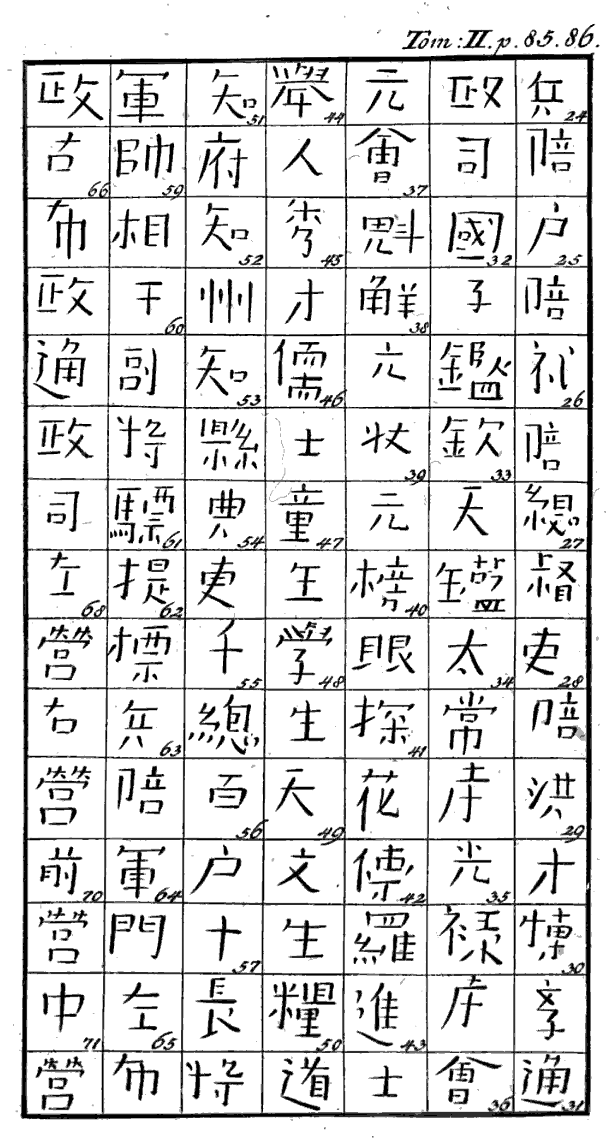 Tom : II. p. 85. 86.
兵 24 陪 户 25 陪 礼 26 陪 總 27 督 吏 28 陪 洪 29 才 30 孝 通 31
政 司 國 32 子 鑑 欽 33 天 鑑 太 34 常 光 35 禄 會 36
元 會 37 魁 解 38 元 状 39 元 榜 40 眼 探 41 花 42 羅 進 43 士
舉 44 人 秀 45 才 儒 46 士 童 47 生 学 48 生 天 49 文 生 糧 50 道
知 51 府 知 52 州 知 53 縣 典 54 吏 千 55 總 百 56 户 十 57 長 将
軍 帥 59 相 干 60 副 将 驃 61 提 62 標 兵 63 陪 軍 64 門 左 65 布
政 右 66 布 政 通 政 司 左 68 營 右 營 前 70 營 中 71 營